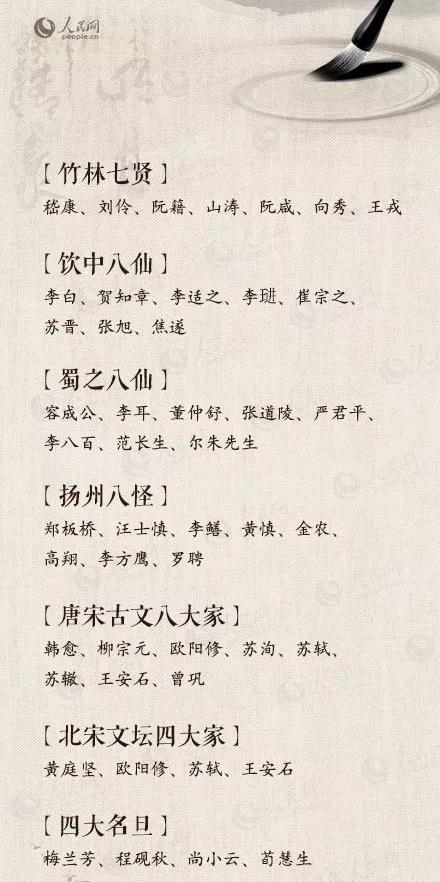 人民网
people.cn
【竹林七贤】
嵇康、刘伶、阮籍、山涛、阮咸、向秀、王戎
【饮中八仙】
李白、贺知章、李适之、李琎、崔宗之、
苏晋、张旭、焦遂
【蜀之八仙】
容成公、李耳、董仲舒、张道陵、严君平、
李八百、范长生、尔朱先生
【扬州八怪】
郑板桥、汪士慎、李鱓、黄慎、金农、
高翔、李方鹰、罗聘
【唐宋古文八大家】
韩愈、柳宗元、欧阳修、苏洵、苏轼、
苏辙、王安石、曾巩
【北宋文坛四大家】
黄庭坚、欧阳修、苏轼、王安石
【四大名旦】
梅兰芳、程砚秋、尚小云、荀慧生